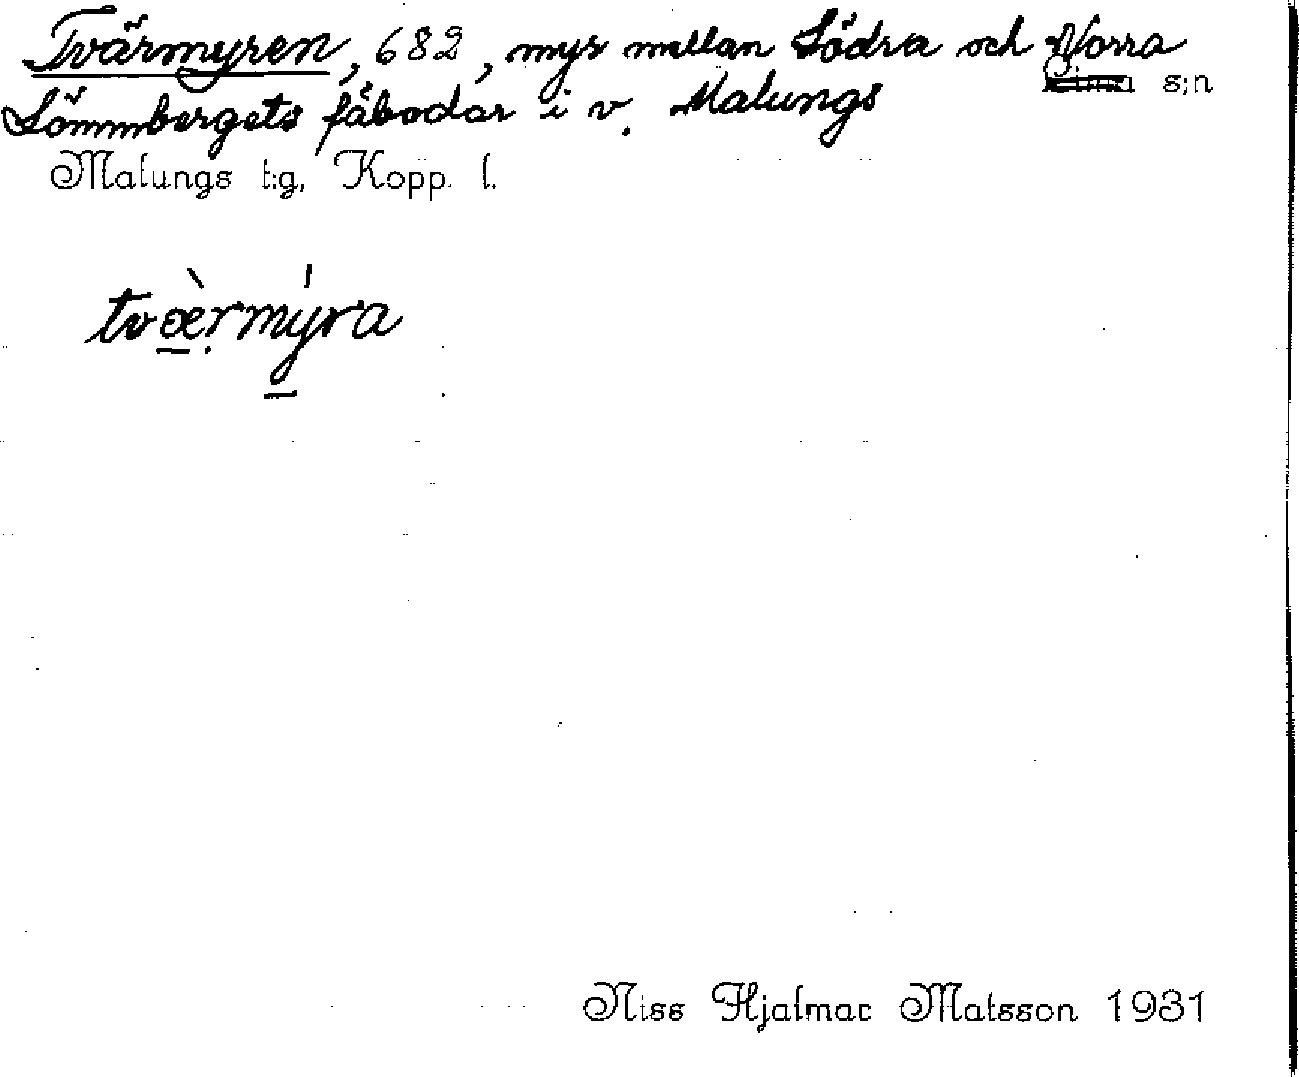 Tvärmyren, 682, myr mellan Södra och Norra
s:n
Lömmbergets fäbodar i v. Malungs
Malungs t:g, Kopp. l.
tvæ̀rmýra
Niss Hjalmar Matsson 1931